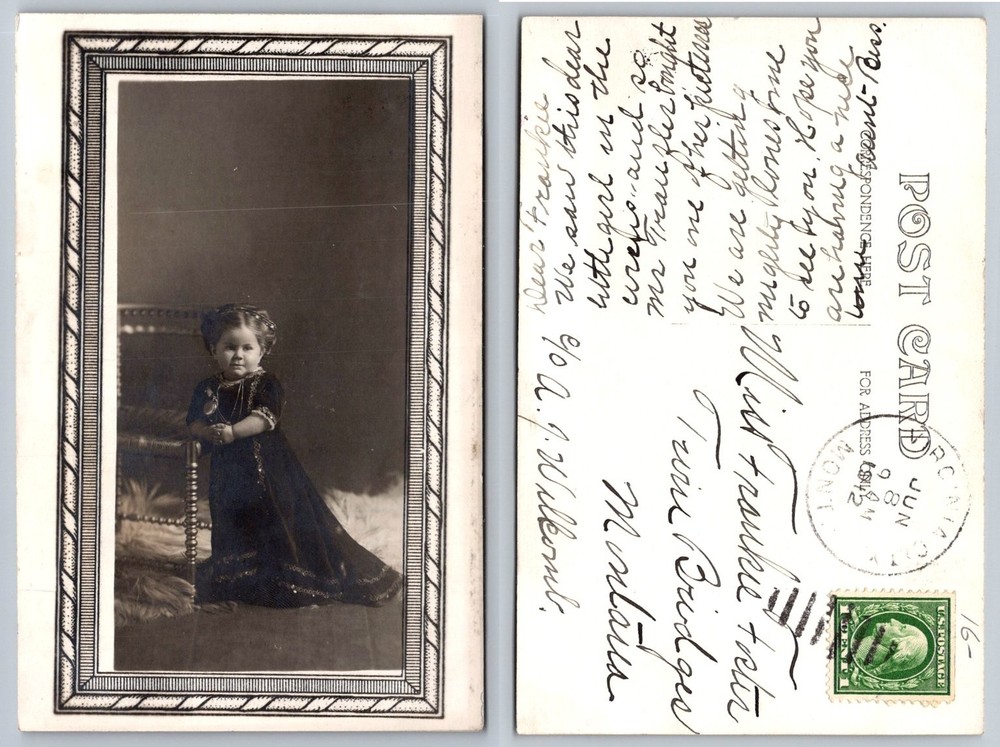 POST CARD
CORRESPONDENCE HERE
FOR ADDRESS ONLY
Dear Frankie
We saw this dear
little girl in the
circus and so
Mr bought
you one of her pictures
We are getting
mighty lonesome
to see you. Hope you
are having a nice
time
Miss Frankie Foster
Twin Bridges
Montana
c/o A. J. Wilkoms.
VIRGINIA CITY
JUN
8
9 AM
1912
MONT
U.S. POSTAGE
1
16-